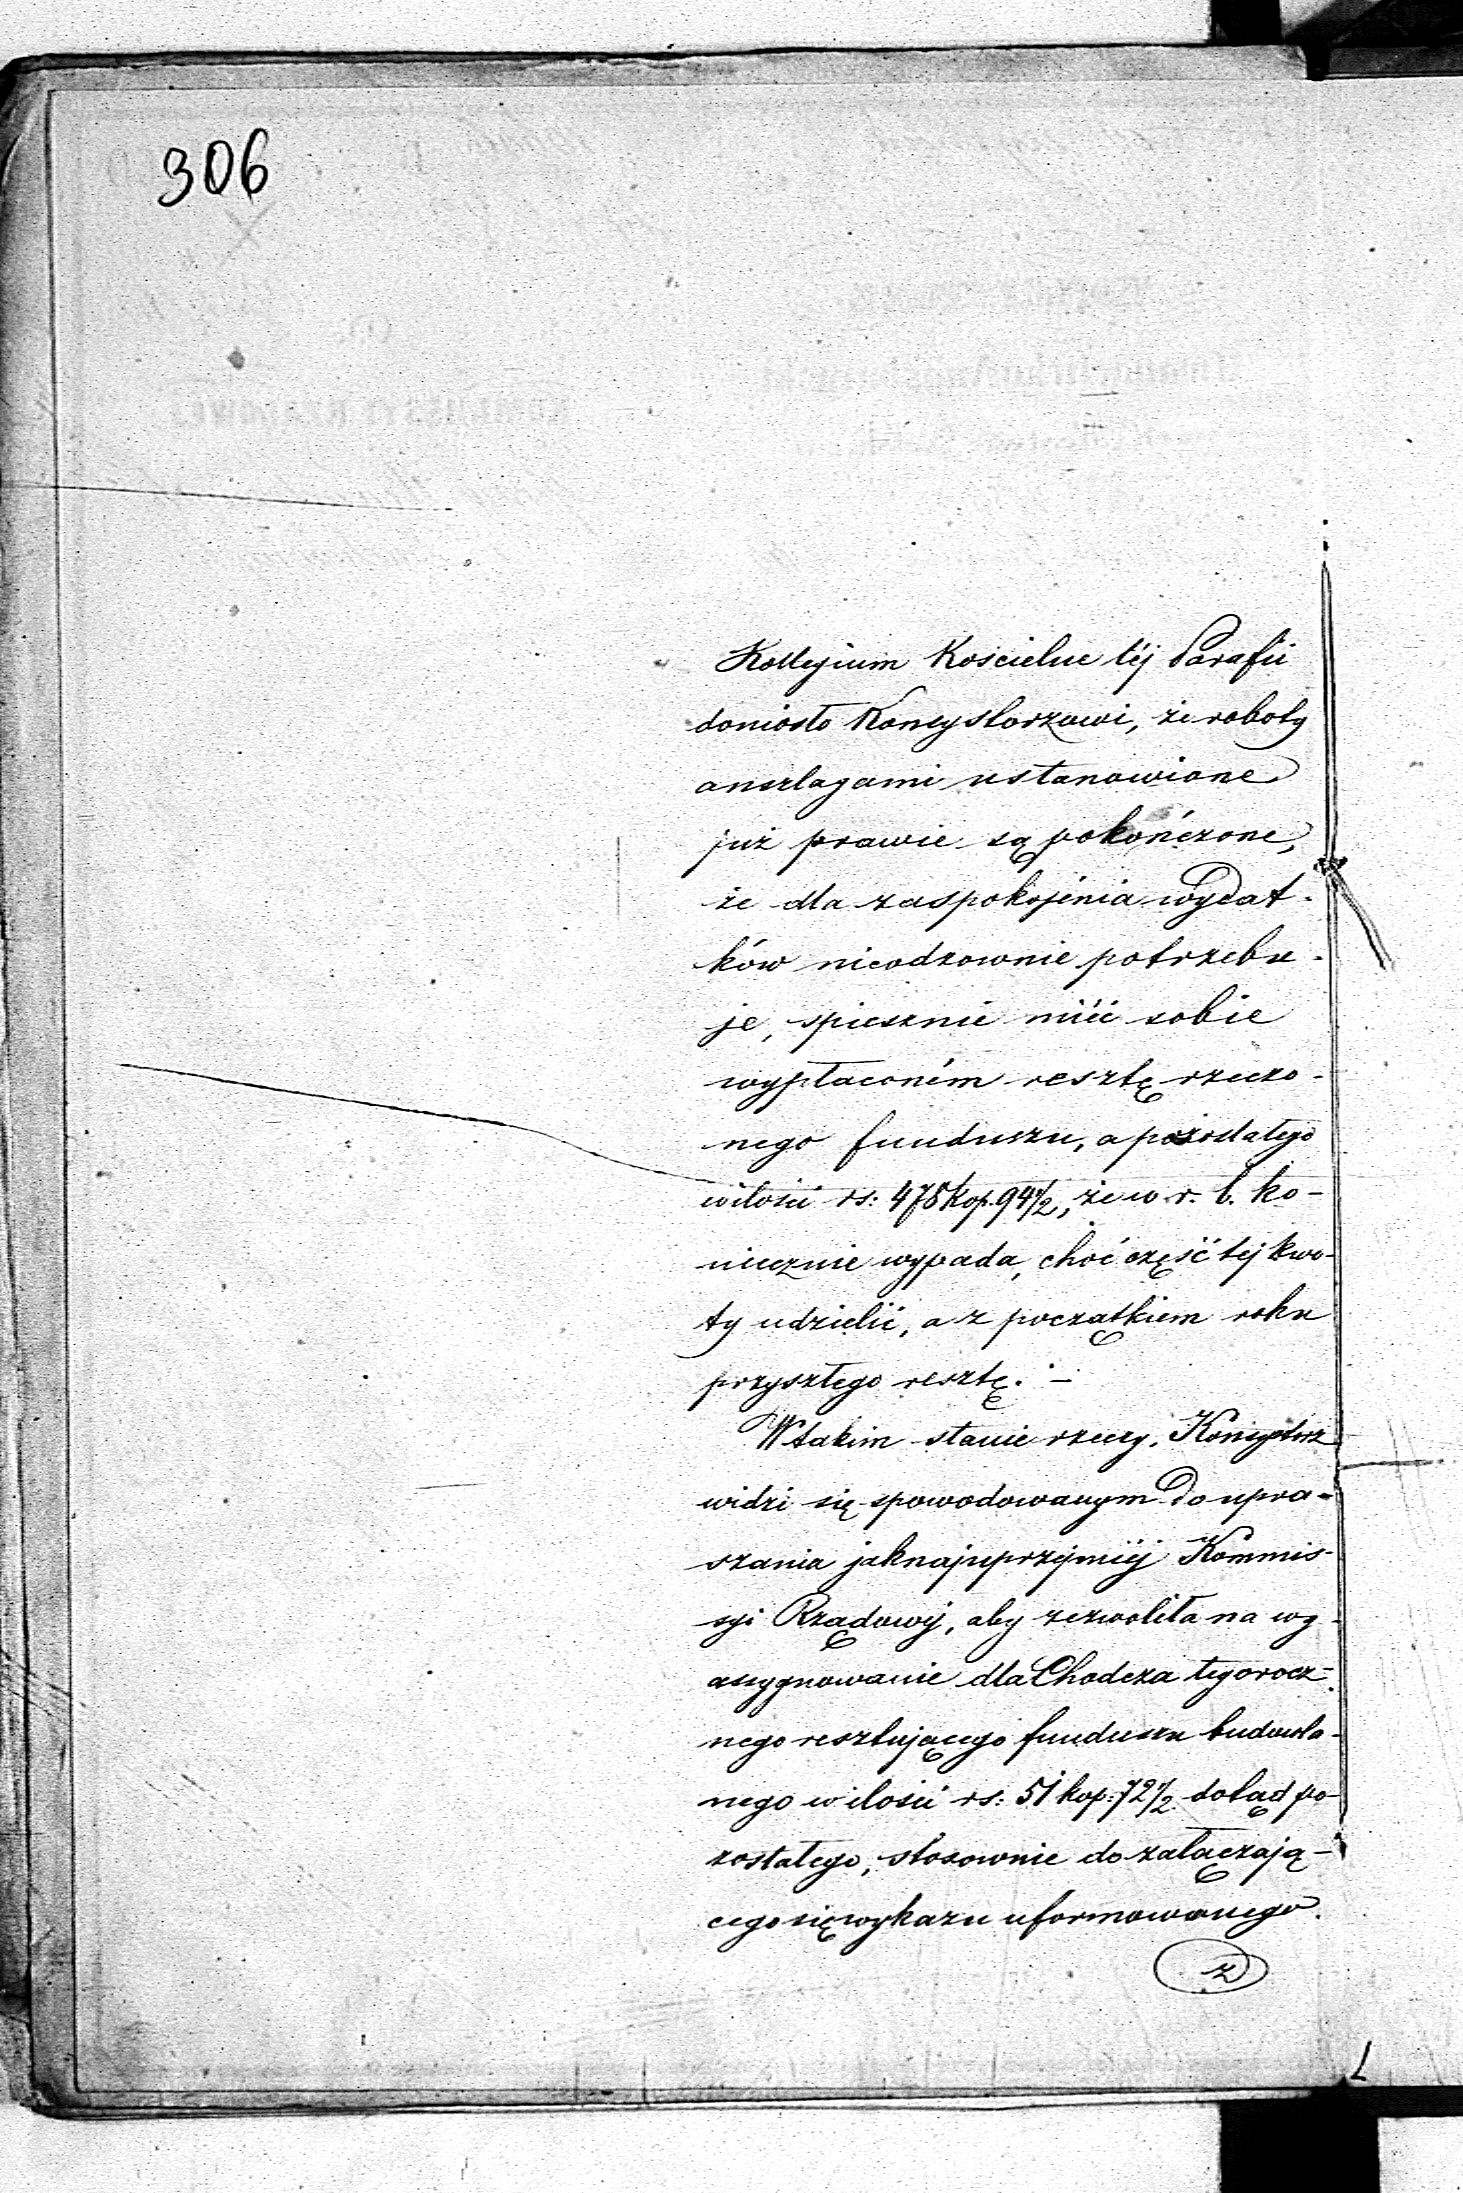 306
Kollegium Kościelne téj Parafii
doniosło Konsystorzowi, że roboty
anszlagami ustanowione
już prawie są pokończone,
że dla zaspokojenia wydat-
ków nieodzownie potrzebu-
je, spiesznie mieć sobie
wypłaconém resztę rzeczo-
nego funduszu, a pozostałego
w ilości rs: 478 kop. 94 1/2, że w r. b. ko-
niecznie wypada, choć część tej kwo-
ty udzielić, a z początkiem roku
przyszłego resztę. —
W takim stanie rzeczy, Konsystorz
widzi się spowodowanym do upra-
szania jaknajuprzejmiéj Kommis-
syi Rządowéj, aby zezwoliła na wy-
assygnowanie dla Chodcza tegorocz-
nego resztującego funduszu budowla-
nego w ilości rs: 51 kop: 72 1/2 dotąd po-
zostałego, stosownie do załączają-
cego się wykazu uformowanego.
z